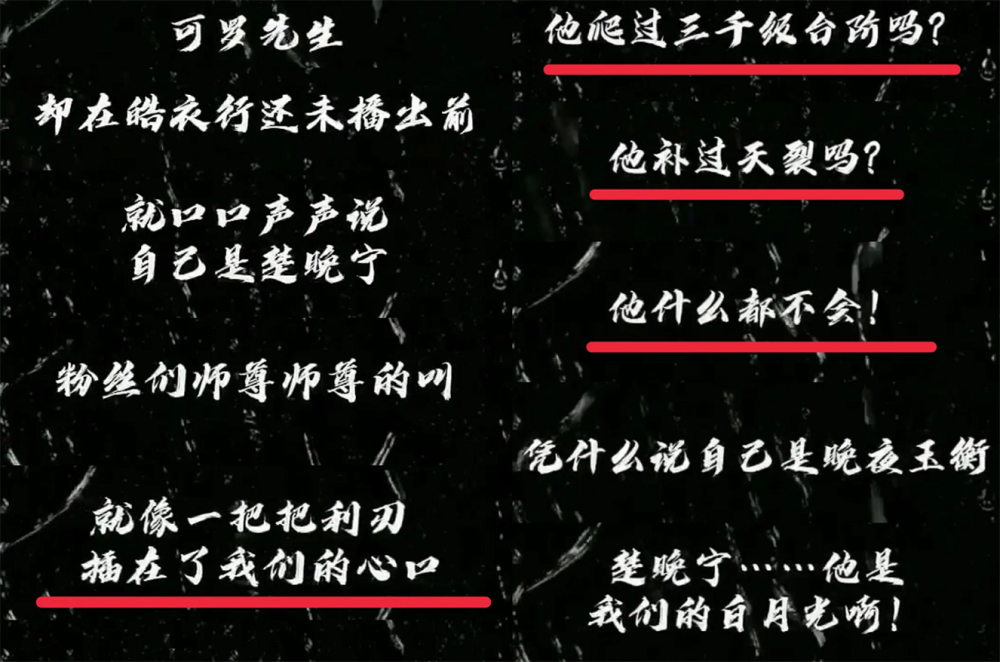 可罗先生
却在皓衣行还未播出前
就口口声声说
自己是楚晚宁
粉丝们师尊师尊的叫
就像一把把利刃
插在了我们的心口
他爬过三千级台阶吗?
他补过天裂吗?
他什么都不会!
凭什么说自己是晚夜玉衡
楚晚宁……他是
我们的白月光啊!